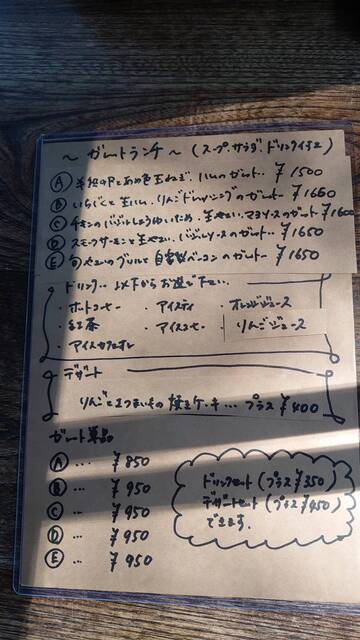 ～ ガレットランチ ～ (スープ、サラダ、ドリンク付き)
Ⓐ 半熟卵とあめ色玉ねぎ、ハムのガレット‥ ¥1500
Ⓑ いちじくと生ハム、りんごドレッシングのガレット‥ ¥1650
Ⓒ チキンのバジルしょうゆいため、生やさい、マヨソースのガレット‥ ¥1600
Ⓓ スモークサーモンと生やさい、バジルソースのガレット‥ ¥1650
Ⓔ 旬やさいのグリルと自家製ベーコンのガレット‥ ¥1650
ドリンク‥ 以下からお選び下さい。
・ホットコーヒー ・アイスティ ・オレンジジュース
・紅茶 ・アイスコーヒー ・りんごジュース
・アイスカフェオレ
デザート
りんごとさつまいもの焼きケーキ… プラス ¥400
ガレット単品
Ⓐ … ¥850
Ⓑ … ¥950
Ⓒ … ¥950
Ⓓ … ¥950
Ⓔ … ¥950
ドリンクセット (プラス ¥350)
デザートセット (プラス ¥450)
できます。